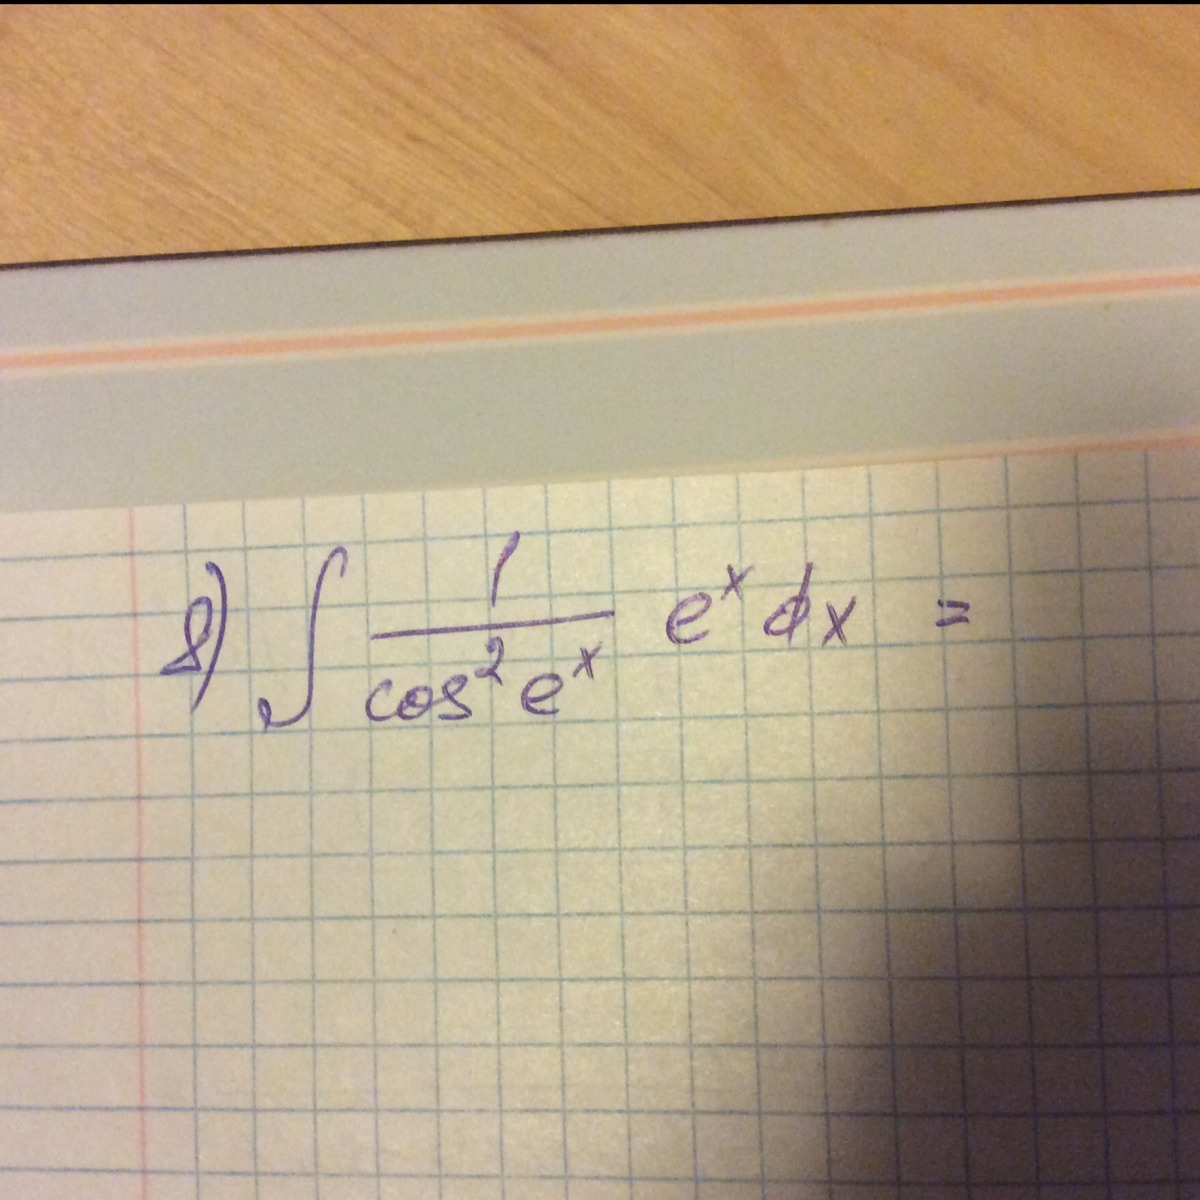 8) ∫ 1/(cos² eˣ) eˣ dx =